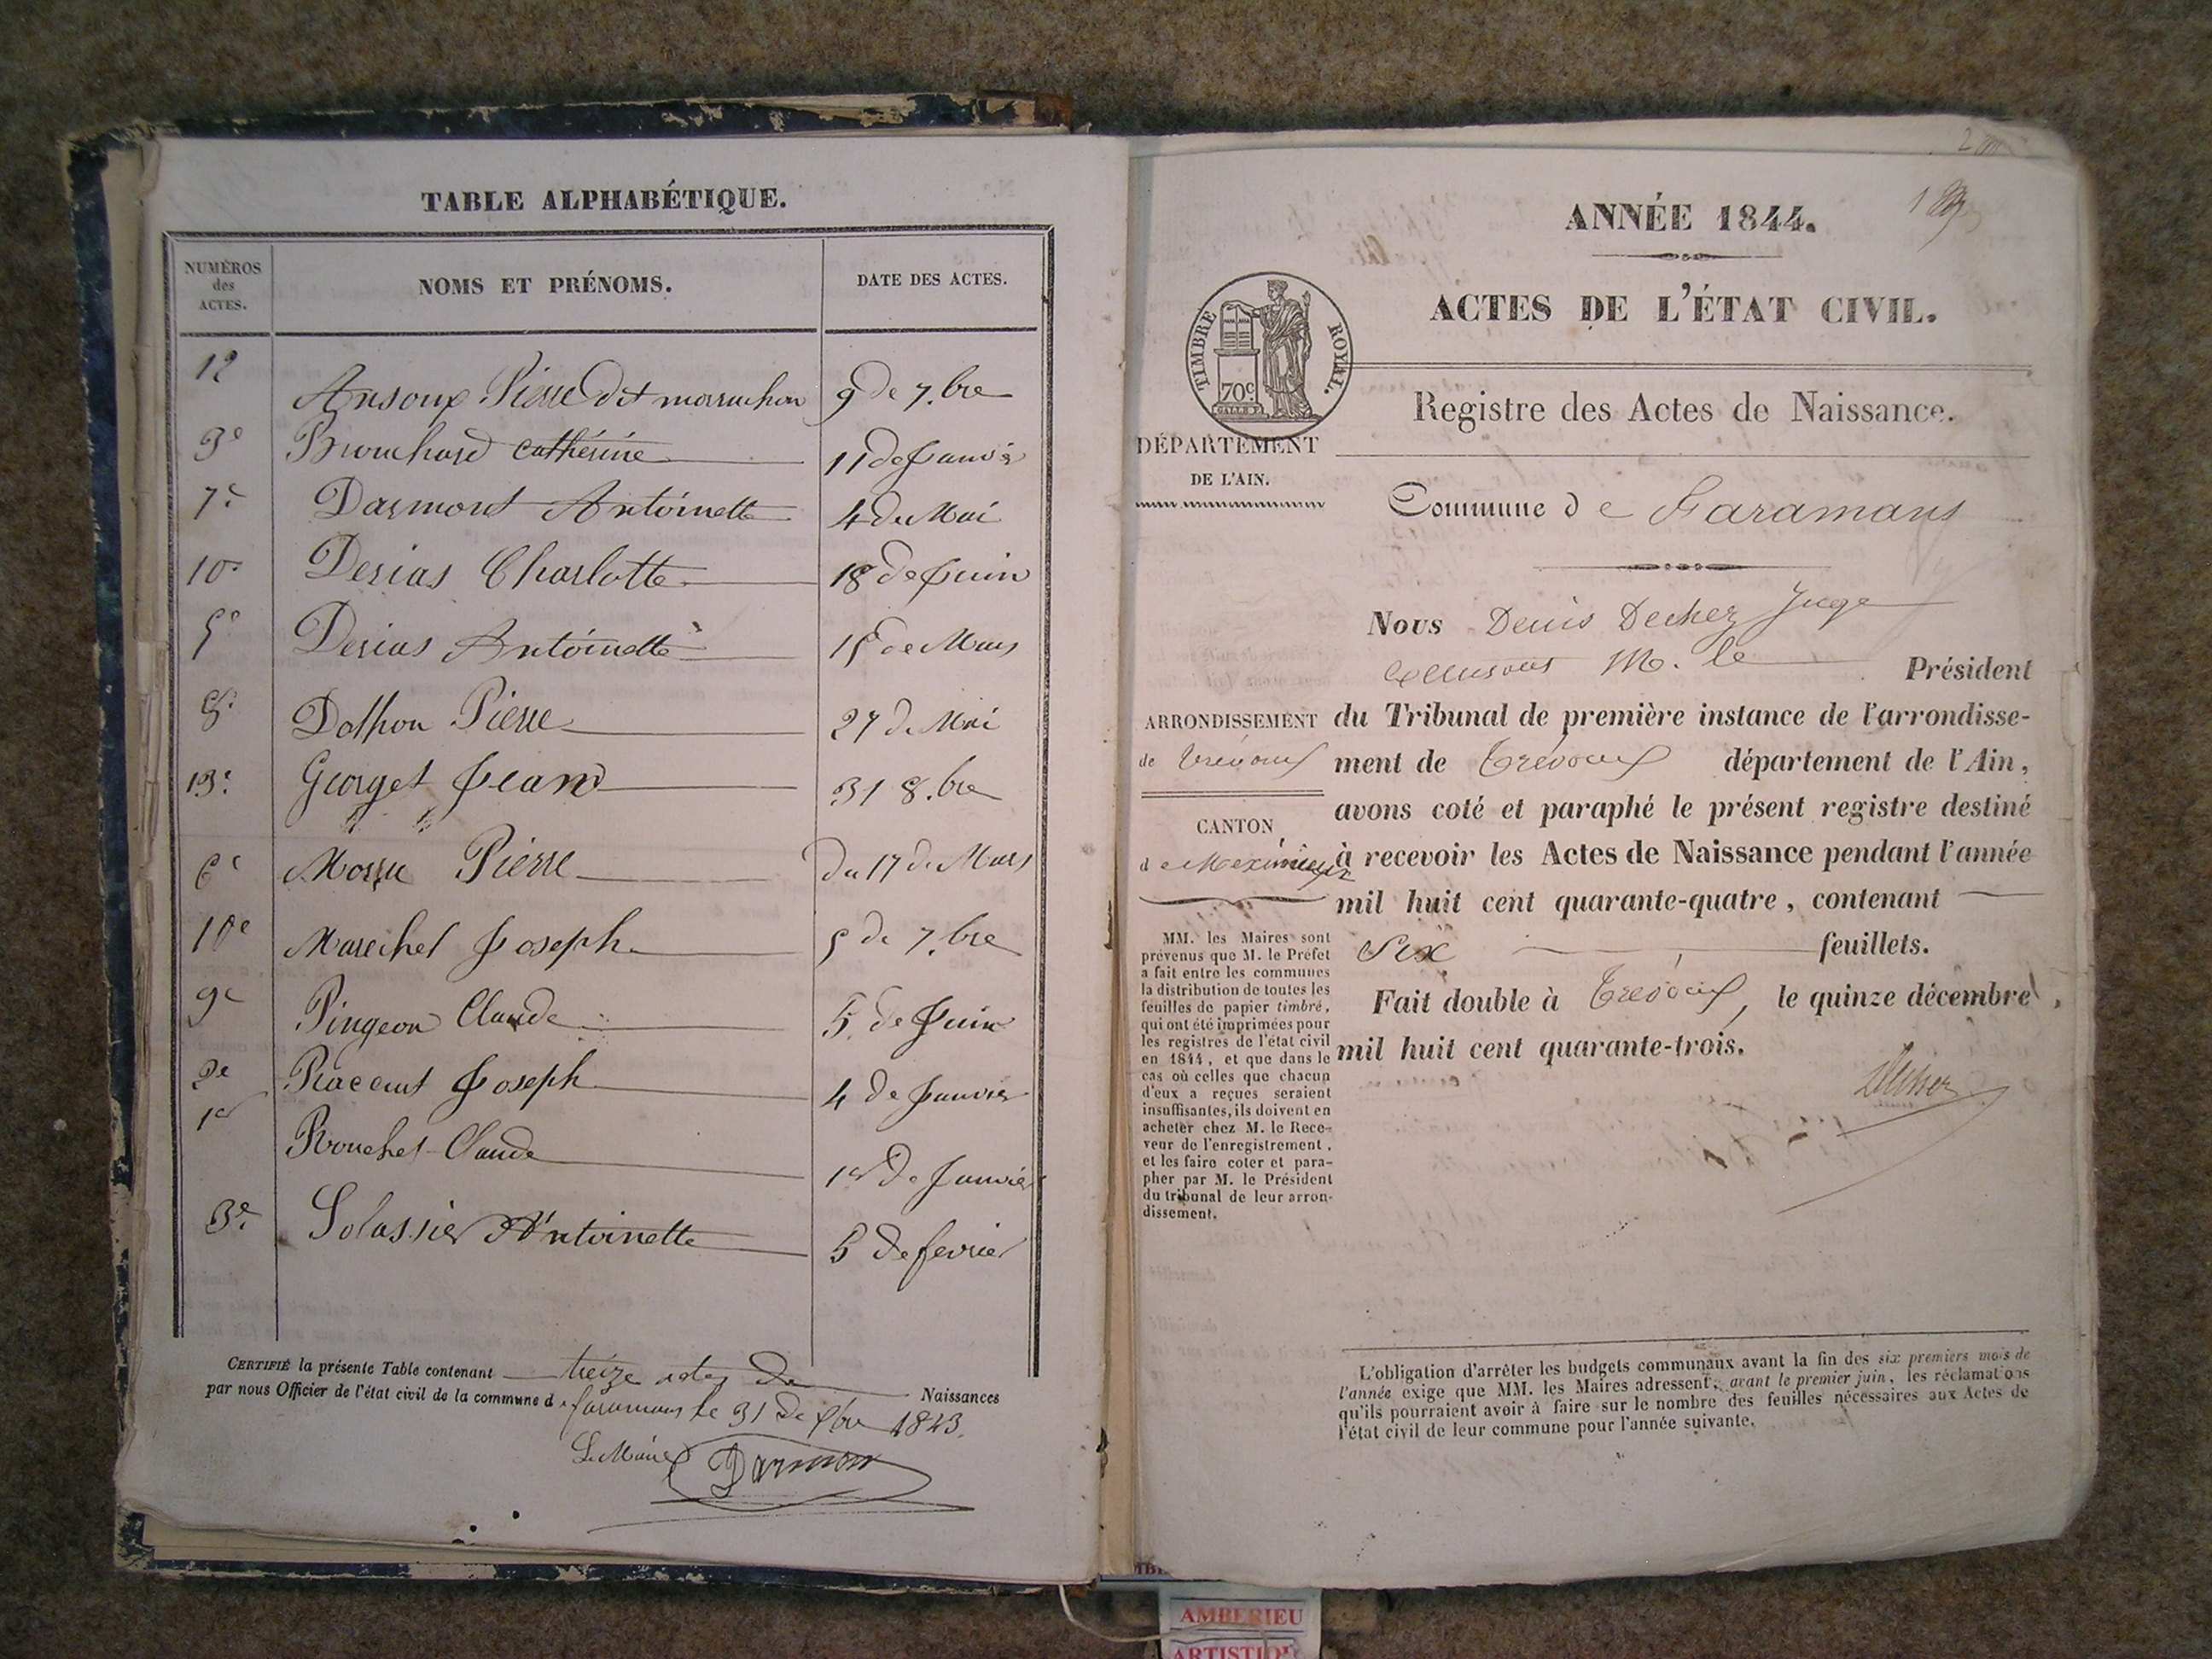 TABLE ALPHABÉTIQUE.
NUMÉROS
des
ACTES.
NOMS ET PRÉNOMS.
DATE DES ACTES.
12 Ansoux Pierre dit 9 de 7.bre
3e Brouchard Cathérine 11 de Janvier
7e Darmont Antoinette 4 du Mai
10e Desias Charlotte 18 de Juin
5e Desias Antoinette 15 de Mars
8e Dothon Pierre 27 de Mai
13e Georget Jean 31 8.bre
6e Pierre Du 17 de Mars
Marechet Joseph 5 de 7.bre
9e Pingeon Claude 5 de Juin
2e Joseph 4 de Janvier
1er Rouchet Claude 1er de Janvier
3e Solassier Antoinette 5 de fevrier
CERTIFIÉ la présente Table contenant treize actes de Naissances
par nous Officier de l'état civil de la commune de faramans le 31 de Xbre 1843.
Le Maire Darmont
ANNÉE 1844.
ACTES DE L'ÉTAT CIVIL.
TIMBRE ROYAL.
70c
Registre des Actes de Naissance.
DÉPARTEMENT
DE L'AIN.
Commune de Faramans
Nous Denis Dechez Juge
M. le Président
ARRONDISSEMENT
de Trévoux
du Tribunal de première instance de l'arrondisse-
ment de Trévoux département de l'Ain,
avons coté et paraphé le présent registre destiné
à recevoir les Actes de Naissance pendant l'année
mil huit cent quarante-quatre, contenant
Six feuillets.
Fait double à Trévoux, le quinze décembre
mil huit cent quarante-trois.
Dechez
CANTON
de Meximieux
MM. les Maires sont
prévenus que M. le Préfet
a fait entre les communes
la distribution de toutes les
feuilles de papier timbré,
qui ont été imprimées pour
les registres de l'état civil
en 1844, et que dans le
cas où celles que chacun
d'eux a reçues seraient
insuffisantes, ils doivent en
acheter chez M. le Rece-
veur de l'enregistrement,
et les faire coter et para-
pher par M. le Président
du tribunal de leur arron-
dissement.
L'obligation d'arrêter les budgets communaux avant la fin des six premiers mois de
l'année exige que MM. les Maires adressent, avant le premier juin, les réclamations
qu'ils pourraient avoir à faire sur le nombre des feuilles nécessaires aux Actes de
l'état civil de leur commune pour l'année suivante.
AMBERIEU